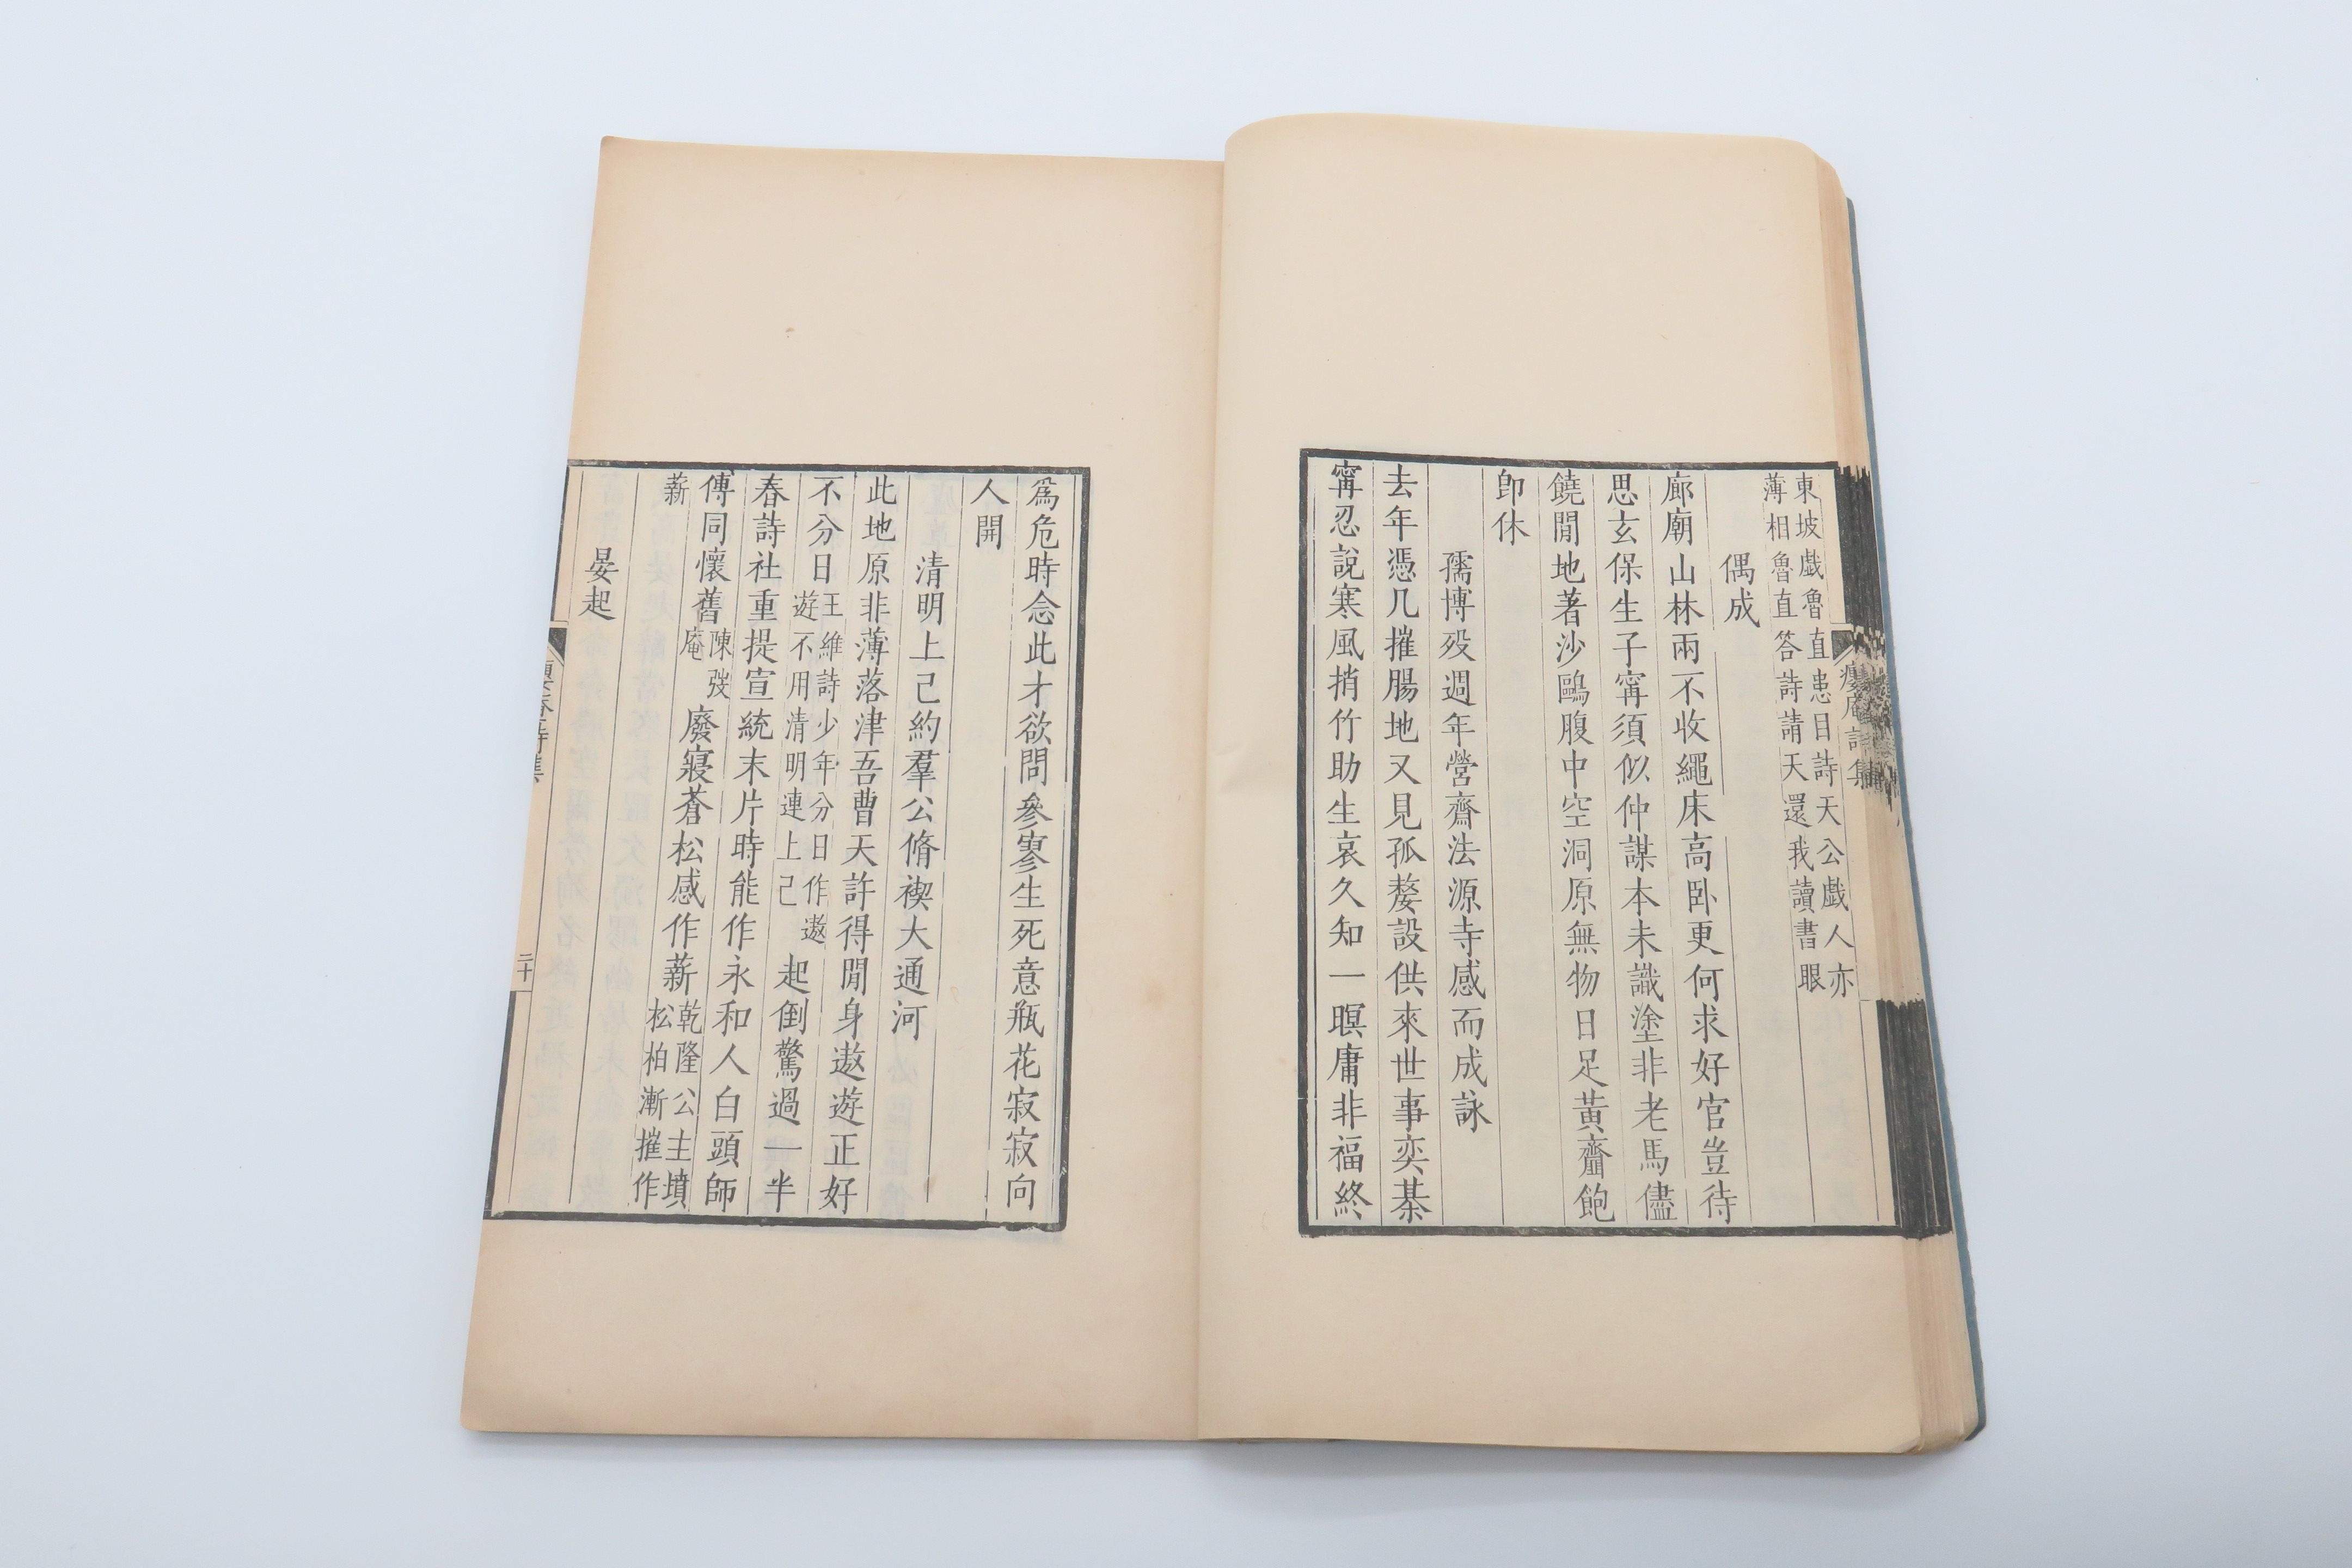 東坡戲魯直患目詩天公戲人亦
薄相魯直答詩請天還我讀書眼
偶成
廊廟山林兩不收繩床高卧更何求好官豈待
思玄保生子甯須似仲謀本未識塗非老馬儘
饒閒地著沙鷗腹中空洞原無物日足黃齏飽
即休
孺博歿週年營齋法源寺感而成詠
去年憑几摧腸地又見孤嫠設供來世事奕棊
甯忍說寒風捎竹助生哀久知一瞑庸非福終
爲危時念此才欲問參寥生死意瓶花寂寂向
人開
清明上己約羣公脩禊大通河
此地原非薄落津吾曹天許得閒身遨遊正好
不分日王維詩少年分日作遨遊不用清明連上己起倒驚過一半
春詩社重提宣統末片時能作永和人白頭師
傅同懷舊陳弢庵廢寢蒼松感作薪乾隆公主墳松柏漸摧作
薪
晏起
癭庵詩集
二十